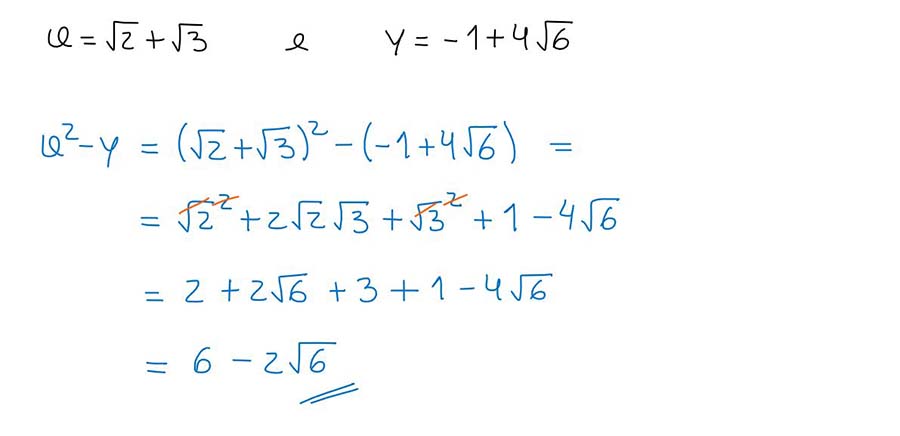 x = √2 + √3 e y = -1 + 4√6
x² - y = (√2 + √3)² - (-1 + 4√6) =
= √2² + 2√2√3 + √3² + 1 - 4√6
= 2 + 2√6 + 3 + 1 - 4√6
= 6 - 2√6